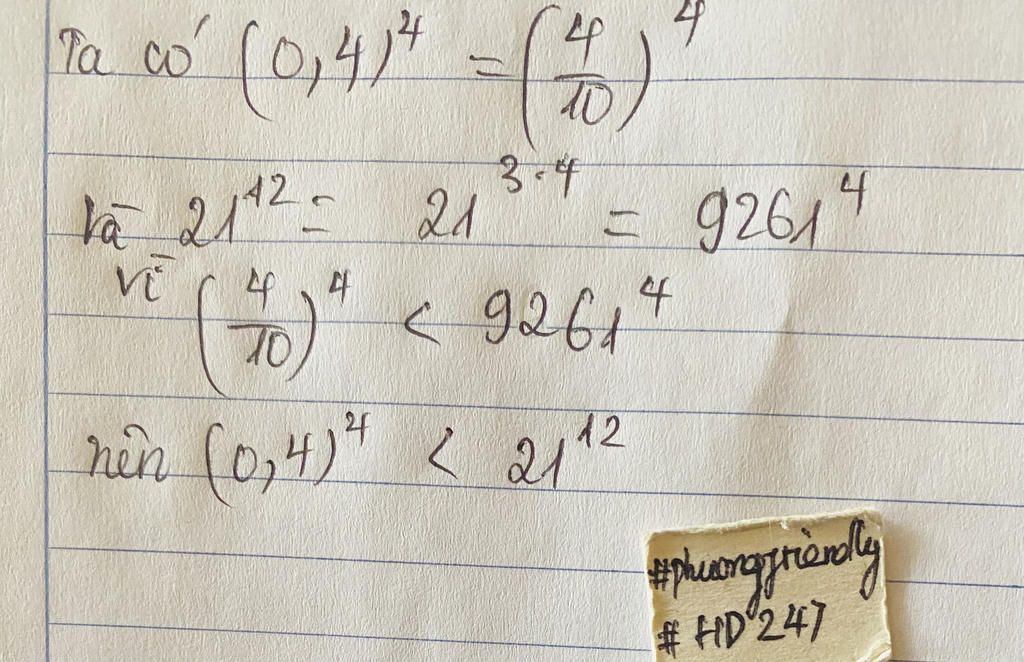 Ta có (0,4)^4 = (4/10)^4
Và 21^12 = 21^3·4 = 9261^4
Vì (4/10)^4 < 9261^4
nên (0,4)^4 < 21^12
#phuongfriendly
# HD 247